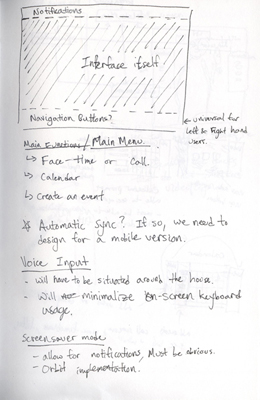 Notifications
Interface itself
Navigation Buttons?
← universal for
left & right hand
user.
Main Functions / Main Menu
↳ Face-time or Call
↳ Calendar
↳ Create an event
* Automatic sync? If so, we need to
design for a mobile version.
Voice Input
- Will have to be situated around the house.
- Will minimalize on-screen keyboard
usage.
Screensaver mode
- allow for notifications, Must be obvious.
- Orbit implementation.